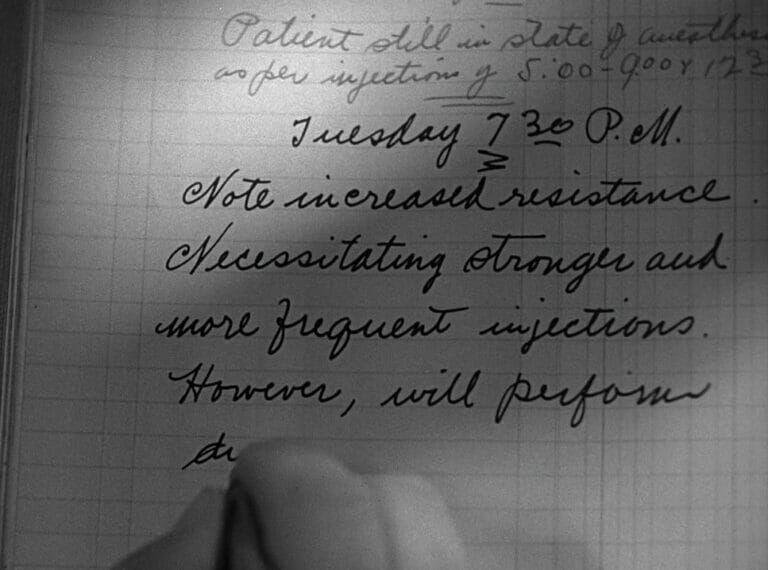 Patient still in state of
as per injections of 5:00-9:00 & 12
Tuesday 7 30 P.M.
Note increased resistance.
Necessitating stronger and
more frequent injections.
However, will perform